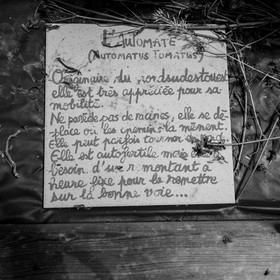 L'AUTOMATE
(AUTOMATUS TOMATUS)
Originaire du nordsudestouest
elle est très appréciée pour sa
mobilité.
Ne possède pas de racines, elle se dé-
place où les chemins la mènent.
Elle peut parfois tourner en
Elle est autofertile mais a
besoin d'un remontant à
heure fixe pour la remettre
sur la bonne voie...